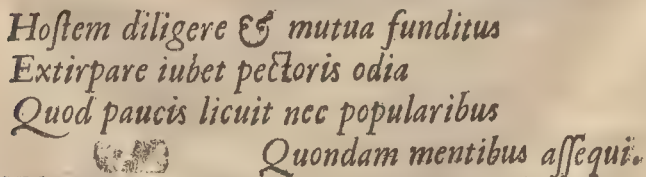 Hoſtem diligere & mutua funditus
Extirpare iubet pectoris odia
Quod paucis licuit nec popularibus
Quondam mentibus aſſequi.